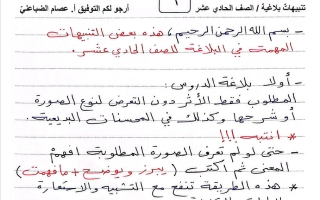 تنبيهات بلاغية / الصف الحادي عشر ١ أرجو لكم التوفيق أ. عصام الضباعين
- بسم الله الرحمن الرحيم، هذه بعض التنبيهات
المهمة في البلاغة للصف الحادي عشر.
- أولا بلاغة الدروس:
المطلوب فقط الأثر دون التعرض لنوع الصورة
أو شرحها وكذلك في المحسنات البديعية.
* انتبه !!!
- حتى لو لم تعرف الصورة المطلوبة افهم
المعنى ثم اكتب (يبرز ويوضح + ما فهمت)
* هذه الطريقة تنفع مع التشبيه والاستعارة